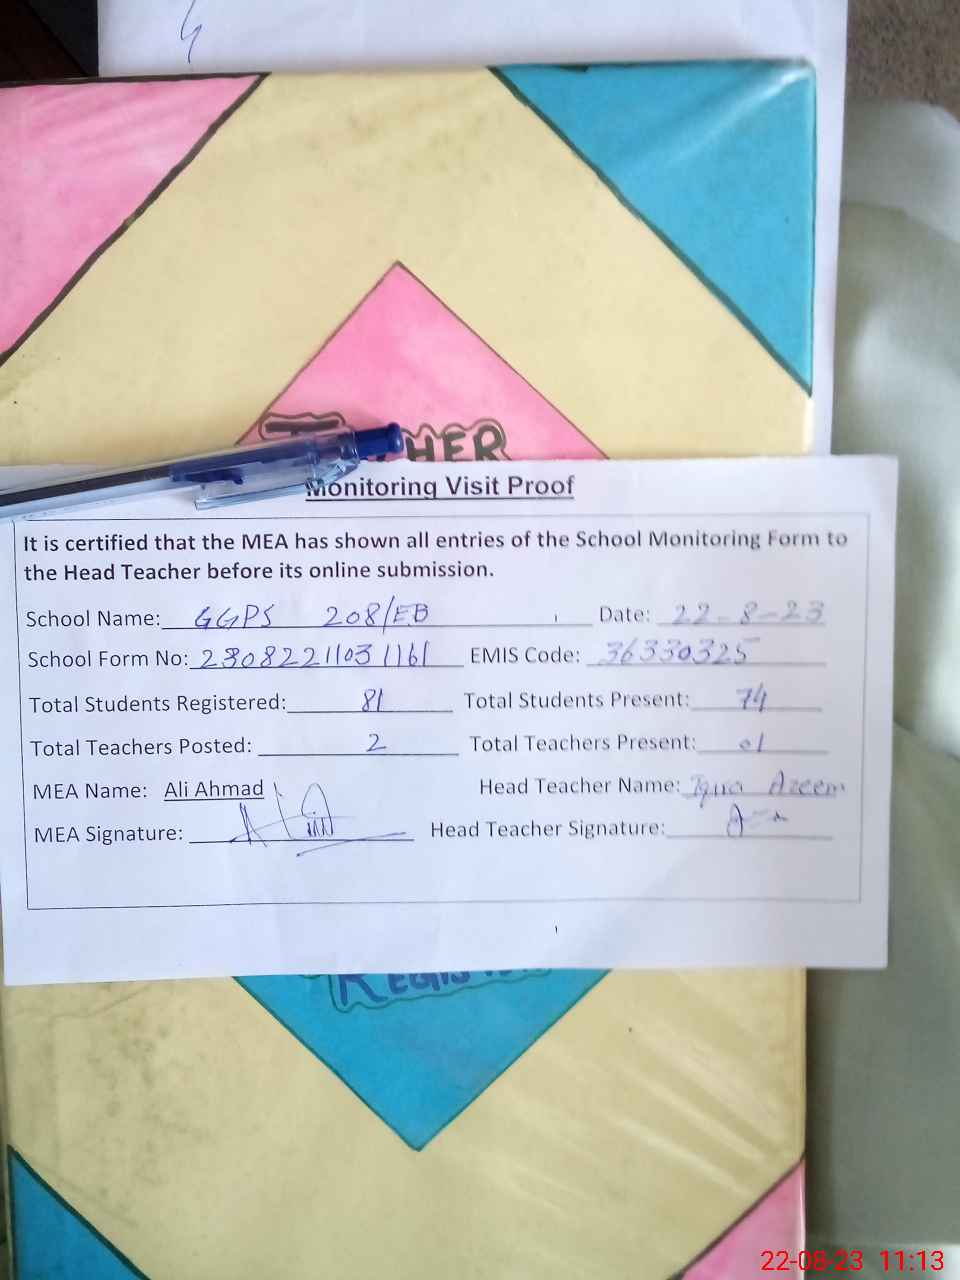 HER
Monitoring Visit Proof
It is certified that the MEA has shown all entries of the School Monitoring Form to
the Head Teacher before its online submission.
School Name: GGPS 208/EB Date: 22-8-23
School Form No: 23082211031161 EMIS Code: 36330325
Total Students Registered: 81 Total Students Present: 74
Total Teachers Posted: 2 Total Teachers Present: 01
MEA Name: Ali Ahmad Head Teacher Name: Iqra Azeem
MEA Signature: Head Teacher Signature:
22-08-23 11:13